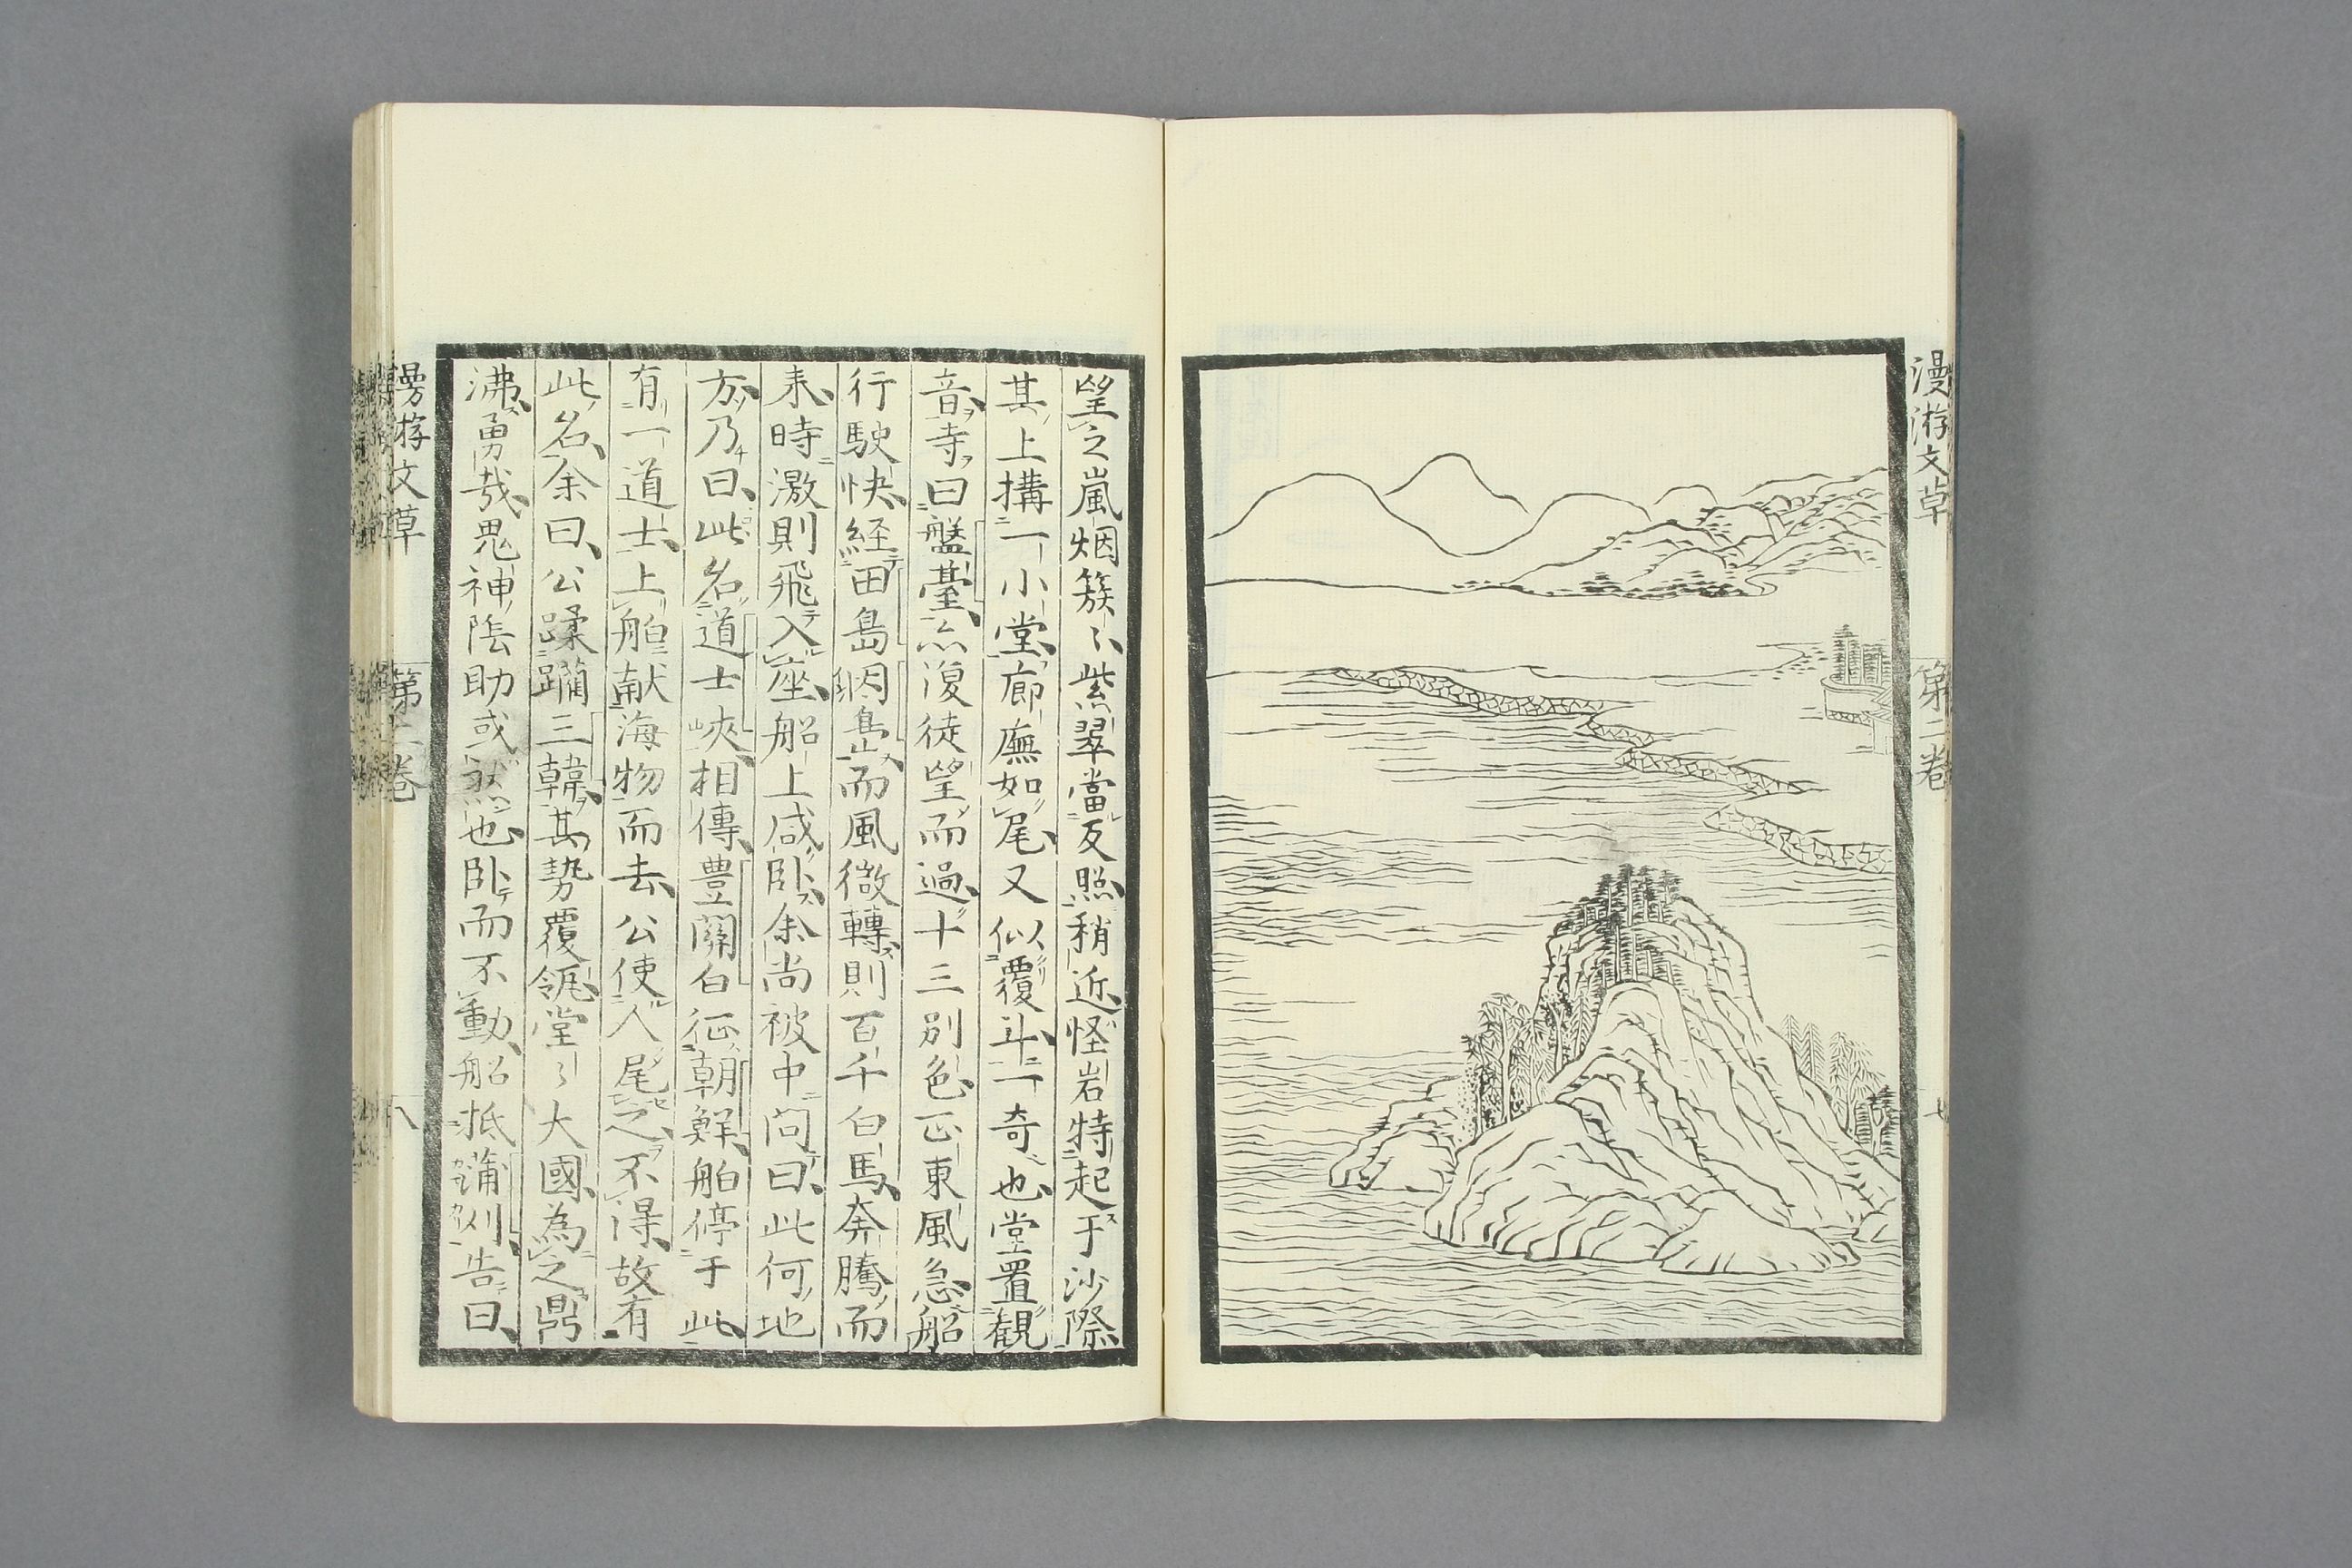 漫游文草 第二卷 七
望之嵐烟簇〻紫翠當反照稍近怪岩特起于沙際
其上搆一小堂廊廡如尾又似覆斗一奇也堂置観
音寺曰盤䑓亦復徒望而過十三別色正東風急船
行駛快経田島網島而風微轉則百千白馬奔騰而
来時激則飛入座船上咸卧余尚被中問曰此何地
方乃曰此名道士峽相傳豊關白征朝鮮舶停于此
有一道士上舶献海物而去公使人尾之不得故有
此名余曰公蹂躙三韓其勢覆瓴堂〻大國為之鼎
沸勇哉鬼神陰助或然也卧而不動船抵蒲刈告曰
漫游文草 第二卷 八